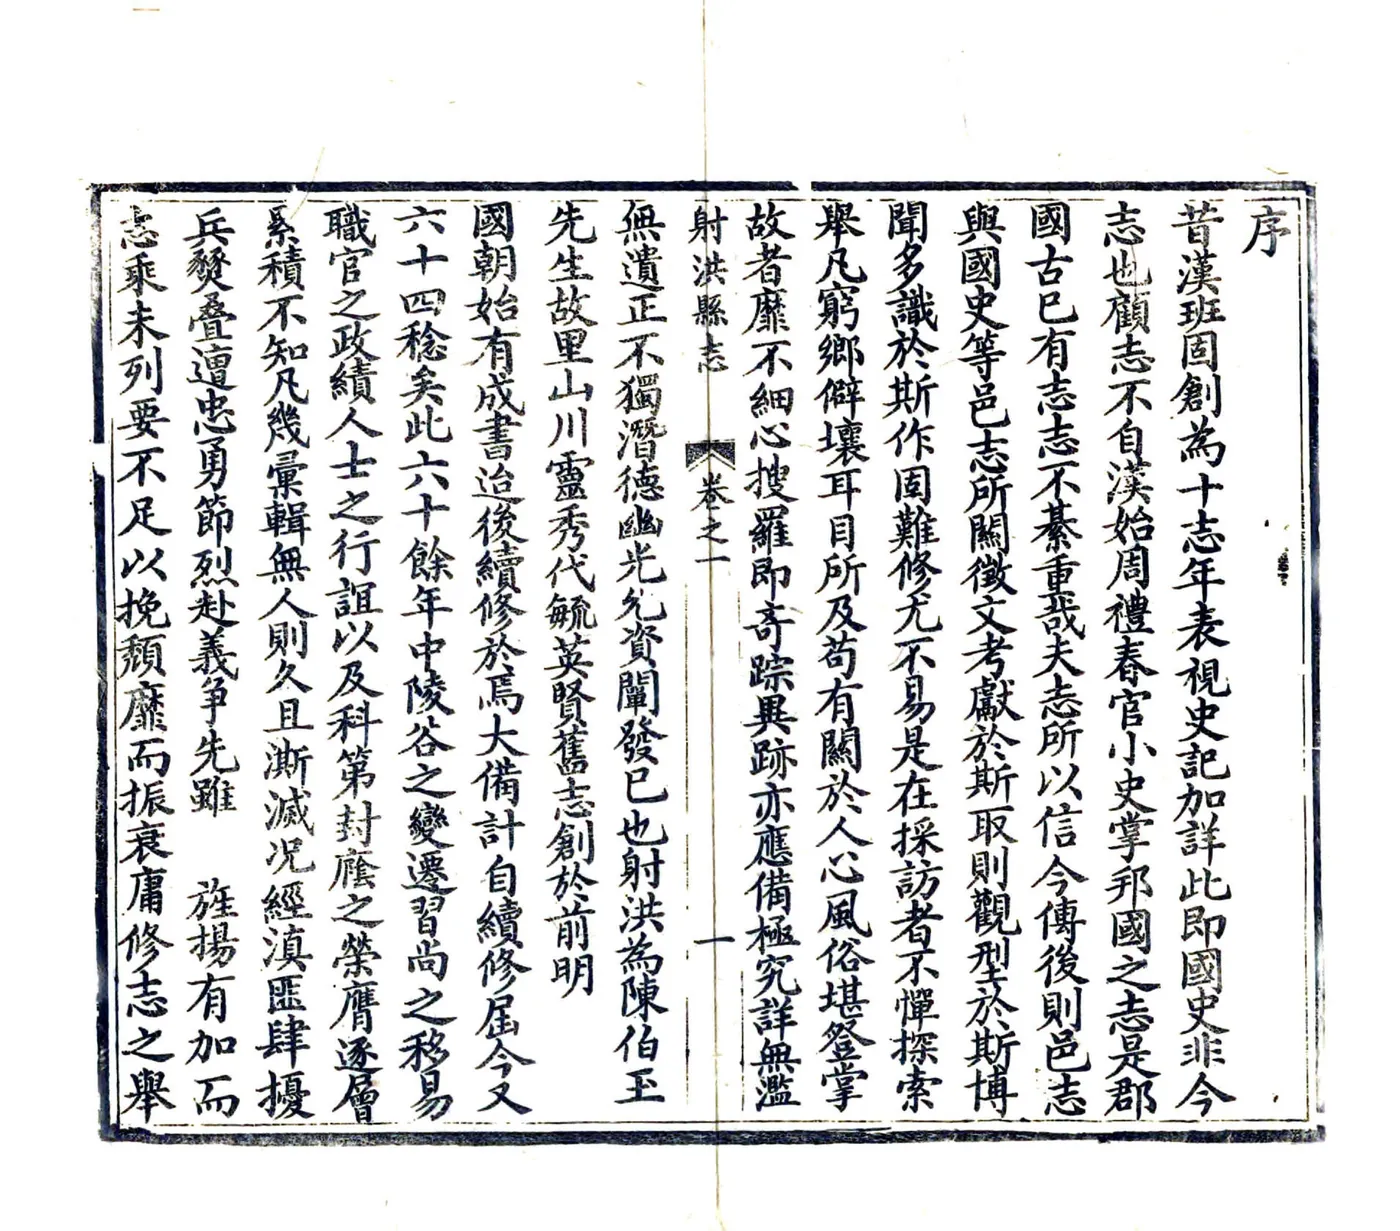 序
昔漢班固創為十志年表視史記加詳此即國史非今
志也顧志不自漢始周禮春官小史掌邦國之志是郡
國古巳有志志不綦重哉夫志所以信今傳後則邑志
與國史等邑志所關徵文考獻於斯取則觀型於斯博
聞多識於斯作固難修尤不易是在採訪者不憚探索
舉凡窮鄉僻壤耳目所及苟有關於人心風俗堪登掌
故者靡不細心搜羅即奇踪異跡亦應備極究詳無濫
射洪縣志
卷之一
一
無遺正不獨潛德幽光允資闡發巳也射洪為陳伯玉
先生故里山川靈秀代毓英賢舊志創於前明
國朝始有成書迨後續修於焉大備計自續修屆今又
六十四稔矣此六十餘年中陵谷之變遷習尚之移易
職官之政績人士之行誼以及科第封廕之榮膺逐層
累積不知凡幾彙輯無人則久且澌滅况經滇匪肆擾
兵燹叠遭忠勇節烈赴義爭先雖　旌揚有加而
志乘未列要不足以挽頹靡而振衰庸修志之舉